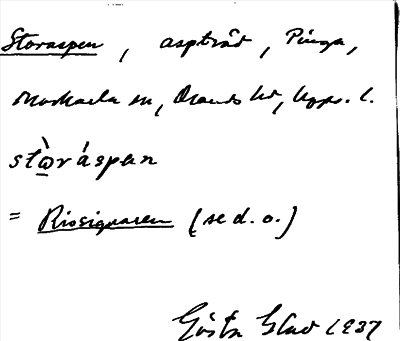 Storaspen, aspträd, Pinga,
Morkarla sn, Olands hd, Upps. l.
stòráspen
= Riosignaren (se d. o.)
Gösta Blad 1937